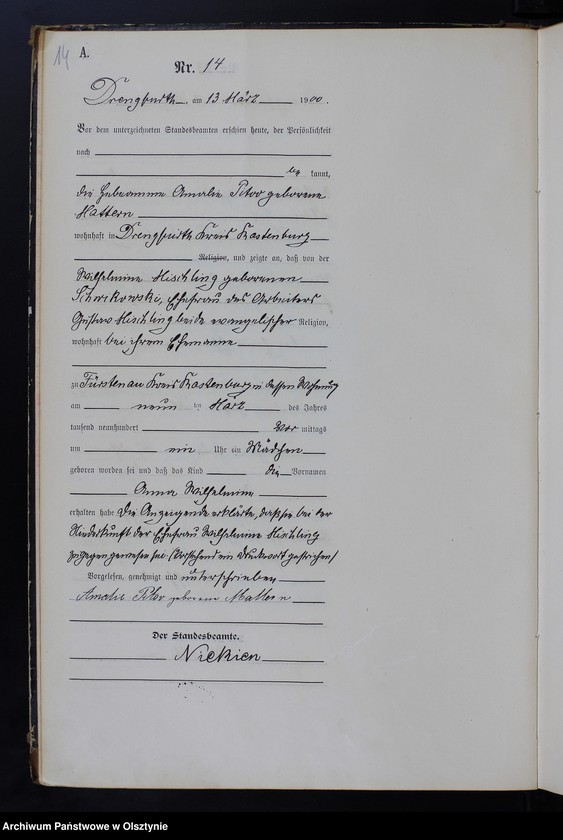 14
A.
Nr. 14
Drengfurth, am 13 März 1900.
Vor dem unterzeichneten Standesbeamten erschien heute, der Persönlichkeit
nach
be kannt,
die Hebeamme Amalie geborene
Mattern
wohnhaft in Drengfurth Kreis Rastenburg
Religion, und zeigte an, daß von der
Wilhelmine Mischling geborenen
Ehefrau des Arbeiters
Gustav Mischling beide evangelischer Religion,
wohnhaft bei ihrem Ehemanne
zu Fürstenau Kreis Rastenburg in dessen Wohnung
am neun ten März des Jahres
tausend neunhundert Vor mittags
um ein Uhr ein Mädchen
geboren worden sei und daß das Kind die Vornamen
Anna Wilhelmine
erhalten habe Die Anzeigende erklärte, daß sie bei der
Niederkunft der Ehefrau Wilhelmine Mischling
zugegen gewesen sei (Vorstehend ein Druckwort gestrichen)
Vorgelesen, genehmigt und unterschrieben
Amalie geborene Mattern
Der Standesbeamte.
Niekien
Archiwum Państwowe w Olsztynie